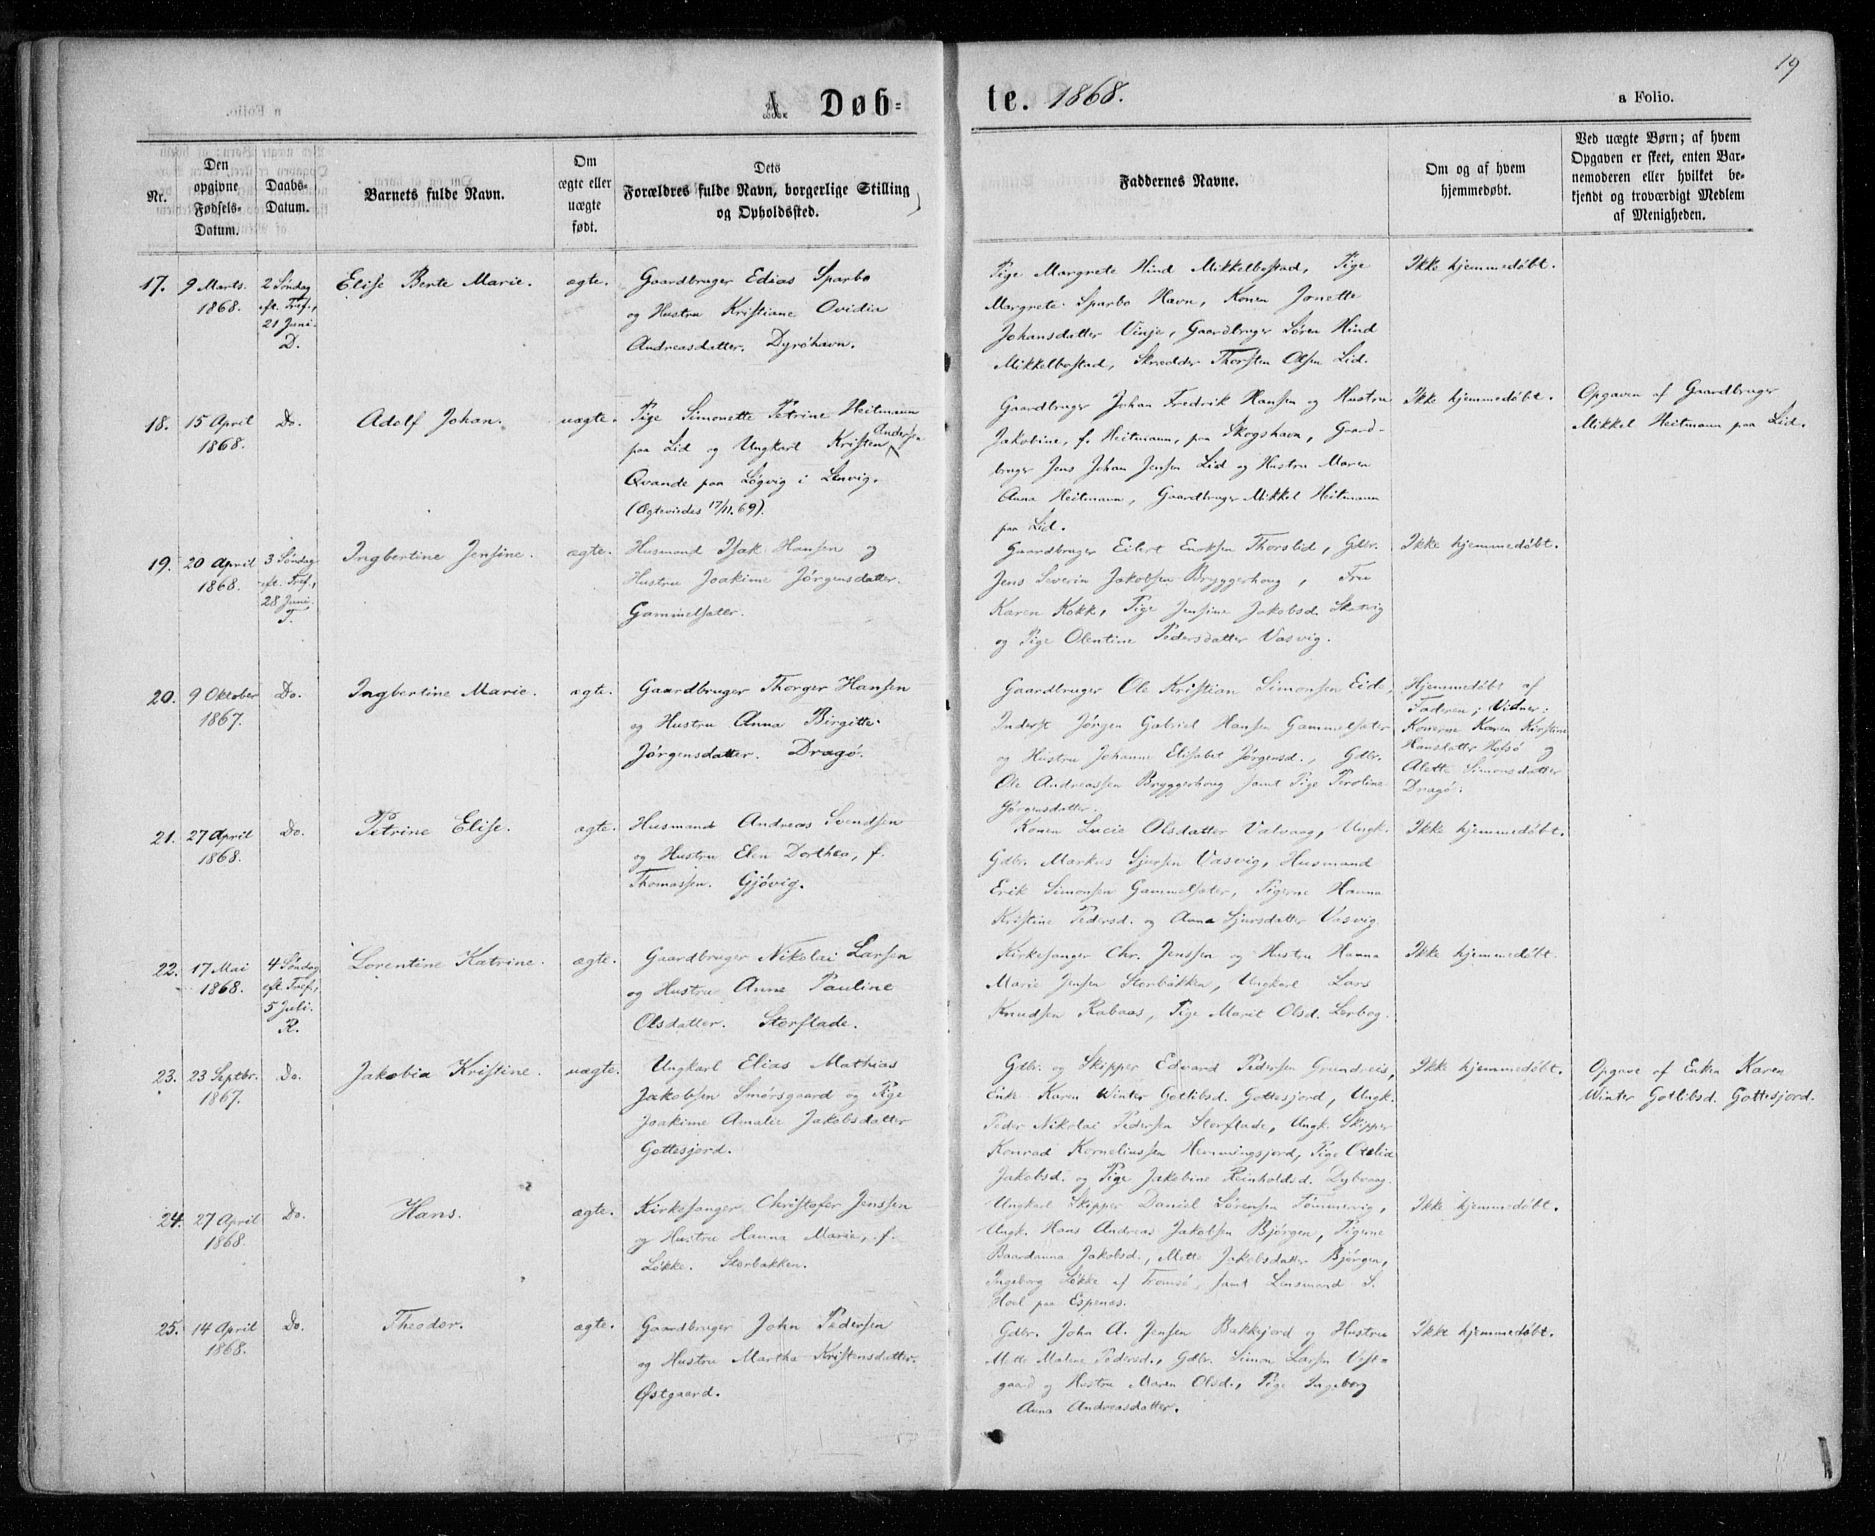 19
A. Døb=
te. 1868.
a Folio.
Nr.
Den
opgivne
Fødsels-
Datum.
Daabs-
Datum.
Barnets fulde Navn.
Om
ægte eller
uægte
født.
Dets
Forældres fulde Navn, borgerlige Stilling
og Opholdssted.
Faddernes Navne.
Om og af hvem
hjemmedøbt.
Ved uægte Børn; af hvem
Opgaven er skeet, enten Bar-
nemoderen eller hvilket be-
kjendt og troværdigt Medlem
af Menigheden.
17.
9 Marts
1868.
2 Søndag
eft. Tref.,
21 Juni.
D.
Elise Berte Marie.
ægte.
Gaardbruger Edias Sparbo
og Hustru Kristiane Ovidia
Andreasdatter. Dyröhavn.
Pige Margrete Hind Mikkelbostad, Pige
Margrete Sparbo Havn, Konen Jonette
Johansdatter Vinje, Gaardbruger Søren Hind
Mikkelbostad, Skrædder Thorsten Olsen Lid.
Ikke hjemmedøbt.
18.
15 April
1868.
Do.
Adolf Johan.
uægte.
Pige Simonette Petrine Heitmann
paa Lid og Ungkarl Kristen Anders.
Qvande paa Løgvig i Lenvig.
(Ægteviedes 17/11.69).
Gaardbruger Johan Fredrik Hansen og Hustru
Jakobine, f. Heitmann, paa Skogshavn, Gaard-
bruger Jens Johan Jensen Lid og Hustru Maren
Anna Heitmann, Gaardbruger Mikkel Heitmann
paa Lid.
Ikke hjemmedøbt.
Opgaven af Gaardbruger
Mikkel Heitmann paa Lid.
19.
20 April
1868.
3 Søndag
eft. Tref.,
28 Juni.
T.
Ingbertine Jensine.
ægte.
Husmand Isak Hansen og
Hustru Joakime Jørgensdatter.
Gammelsæter.
Gaardbruger Eilert Enoksen Thorslid, Gdbr.
Jens Severin Jakobsen Bryggerhoug, Fru
Karen Kokk, Pige Jensine Jakobsd. Skatvig
og Pige Olentine Pedersdatter Vasvig.
Ikke hjemmedøbt.
20.
9 Oktober
1867.
Do.
Ingbertine Marie.
ægte.
Gaardbruger Thorger Hansen
og Hustru Anna Birgitte
Jørgensdatter. Dragö.
Gaardbruger Ole Kristian Simonsen Eide,
Inderst Jørgen Gabriel Hansen Gammelsæter
og Hustru Johanne Elisabet Jørgensd., Gdbr.
Ole Andreassen Bryggerhoug samt Pige Peroline
Jørgensdatter.
Hjemmedøbt af
Faderen; Vidner:
Konerne Karen Kirstine
Hansdatter Hofsö og
Alette Simonsdatter
Dragö.
21.
27 April
1868.
Do.
Petrine Elise.
ægte.
Husmand Andreas Svendsen
og Hustru Elen Dorthea, f.
Thomassen. Gjövig.
Konen Lucie Olsdatter Valvaag, Ungk.
Gdbr. Markus Sjursen Vasvig, Husmand
Erik Simonsen Gammelsæter, Pigerne Hanna
Kristine Pedersd. og Anna Sjursdatter Vasvig.
Ikke hjemmedøbt.
22.
17 Mai
1868.
4 Søndag
eft. Tref.,
5 Juli.
R.
Lorentine Katrine.
ægte.
Gaardbruger Nikolai Larsen
og Hustru Anne Pauline
Olsdatter. Storflade.
Kirkesanger Chr. Jenssen og Hustru Hanna
Marie Jensen Storbakken, Ungkarl Lars
Knudsen Rabaas, Pige Marit Olsd. Lerbog.
Ikke hjemmedøbt.
23.
23 Septbr.
1867.
Do.
Jakobia Kristine.
uægte.
Ungkarl Elias Mathias
Jakobsen Smörsgaard og Pige
Joakime Amalie Jakobsdatter
Gottesjord.
Gdbr. og Skipper Edvard Pedersen Grundreis,
Enke Karen Winter Gotlibsd. Gottesjord, Ungk.
Peder Nikolai Pedersen Storflade, Ungk. Skipper
Konrad Korneliussen Hemmingsjord, Pige Otelia
Jakobsd. og Pige Jakobine Reinholdsd. Dybvaag.
Ikke hjemmedøbt.
Opgave af Enken Karen
Winter Gotlibsd. Gottesjord.
24.
27 April
1868.
Do.
Hans.
ægte.
Kirkesanger Christofer Jenssen
og Hustru Hanna Marie, f.
Løkke. Storbakken.
Ungkarl Skipper Daniel Sörensen Tömmervig,
Ungk. Hans Andreas Jakobsen Bjørgen, Pigerne
Baardanna Jakobsd., Mette Jakobsdatter Bjørgen,
Ingeborg Løkke af Tromsö, samt Lensmand S.
Hoel paa Espenæs.
Ikke hjemmedøbt.
25.
14 April
1868.
Do.
Theodor.
ægte.
Gaardbruger John Pedersen
og Hustru Martha Kristensdatter.
Østgaard.
Gdbr. John A. Jensen Bakkejord og Hustru
Mette Malene Pedersd., Gdbr. Simon Larsen Vest-
gaard og Hustru Maren Olsd., Pige Ingeborg
Anna Andreasdatter.
Ikke hjemmedøbt.